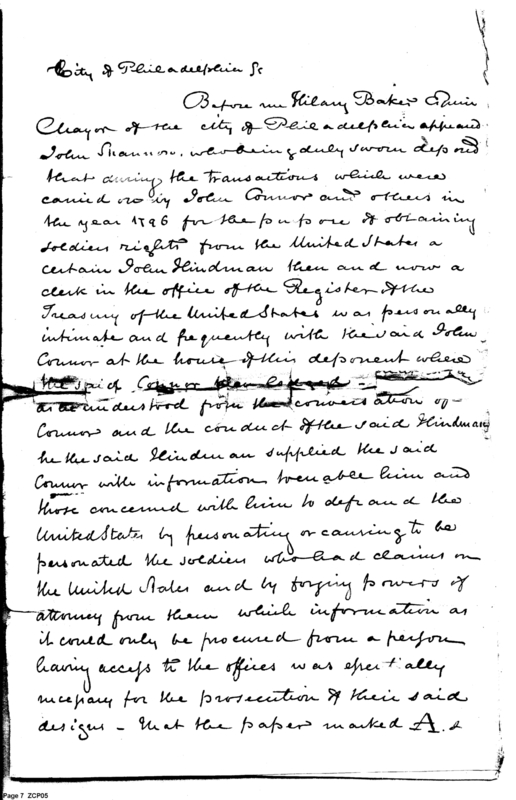 City of Philadelphia Sc
Before me Hilary Baker Esquire
Mayor of the city of Philadelphia appeared
John Shannon, who being duly sworn deposed
that during the transactions which were
carried on by John Connor and others in
the year 1796 for the purpose of obtaining
soldiers rights from the United States a
certain John Hindman then and now a
clerk in the office of the Register of the
Treasury of the United States was personally
intimate and frequently with the said John
Connor at the house of this deponent where
the said Connor then lodged
as understood from the conversation of
Connor and the conduct of the said Hindman
he the said Hindman supplied the said
Connor with information to enable him and
those concerned with him to defraud the
United States by personating or causing to be
personated the soldiers who had claims on
the United States and by forging powers of
attorney from them which information as
it could only be procured from a person
having access to the offices was essentially
necessary for the prosecution of their said
designs - that the paper marked A. &
Page 7 ZCP05